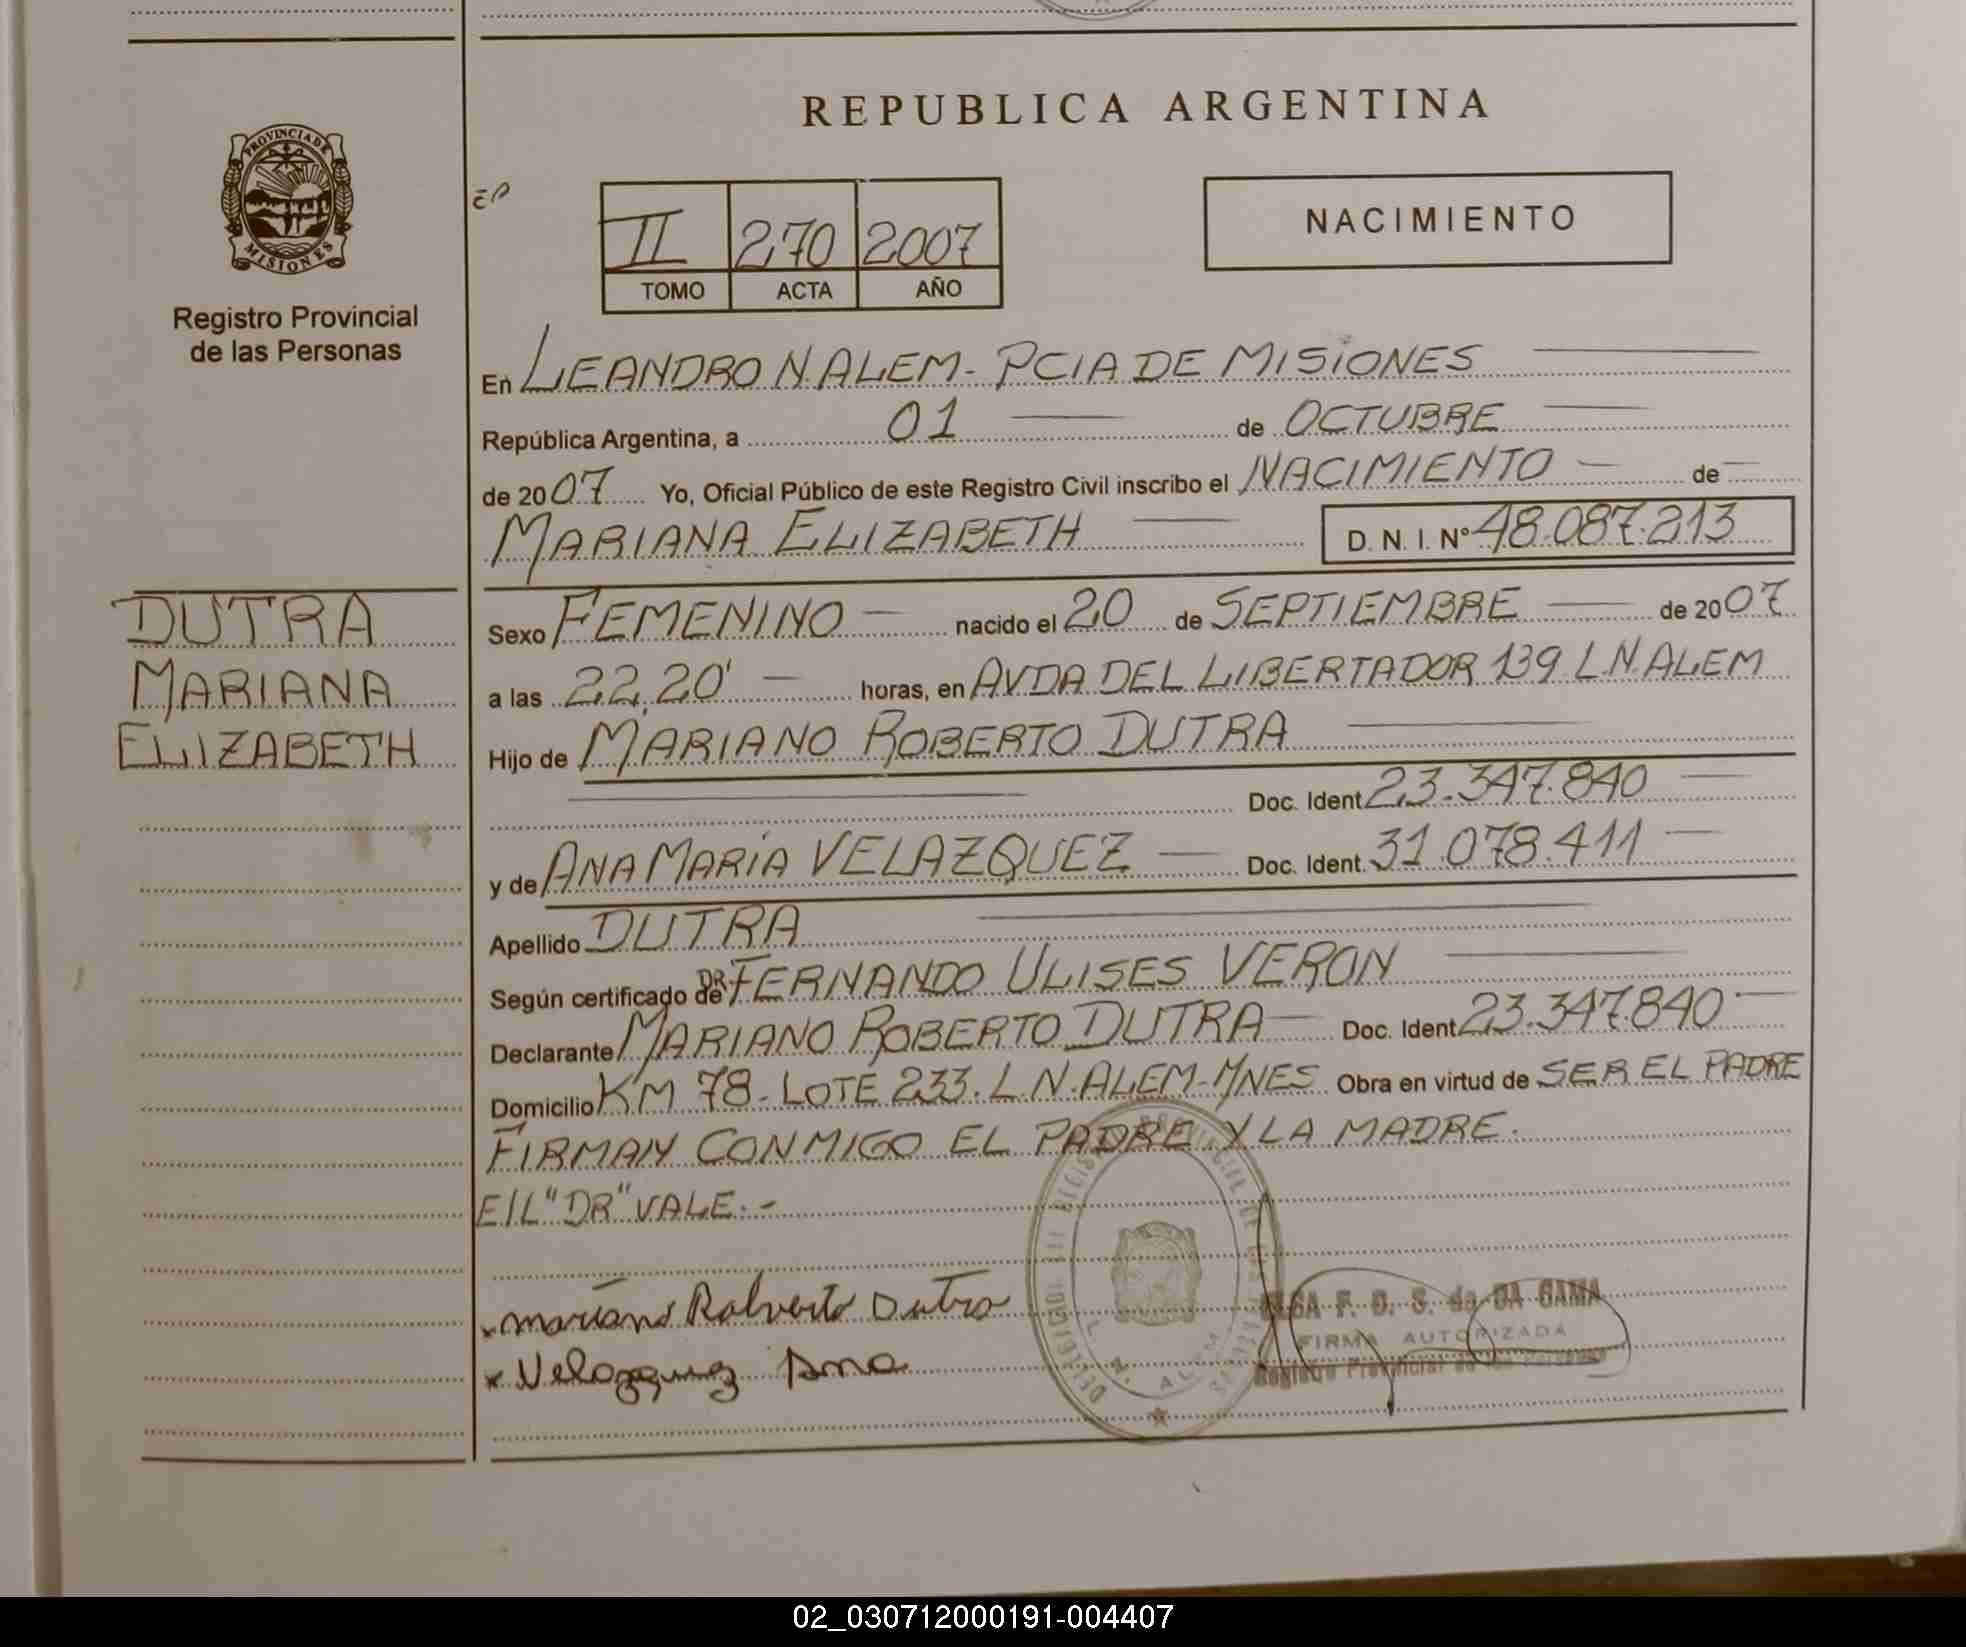 REPUBLICA ARGENTINA
PROVINCIA DE
MISIONES
Registro Provincial
de las Personas
II 270 2007
TOMO ACTA AÑO
NACIMIENTO
En LEANDRO N. ALEM - PCIA DE MISIONES
República Argentina, a 01 de OCTUBRE
de 2007 Yo, Oficial Público de este Registro Civil inscribo el NACIMIENTO de
MARIANA ELIZABETH D. N. I. Nº 48.087.213
DUTRA
MARIANA
ELIZABETH
Sexo FEMENINO nacido el 20 de SEPTIEMBRE de 2007
a las 22,20' horas, en AVDA DEL LIBERTADOR 139 L.N.ALEM
Hijo de MARIANO ROBERTO DUTRA
Doc. Ident 23.347.840
y de ANA MARÍA VELAZQUEZ Doc. Ident. 31.078.411
Apellido DUTRA
Según certificado de DR FERNANDO ULISES VERON
Declarante MARIANO ROBERTO DUTRA Doc. Ident 23.347.840
Domicilio KM 78 - LOTE 233. L.N.ALEM-MNES Obra en virtud de SER EL PADRE
FIRMAN CONMIGO EL PADRE Y LA MADRE.
E/L "DR" VALE.-
mariano Rolverto Dutra
x Velazquez Ana
L. N. ALEM
F. D. S. de DA GAMA
FIRMA AUTORIZADA
Registro Provincial de las Personas
02_030712000191-004407